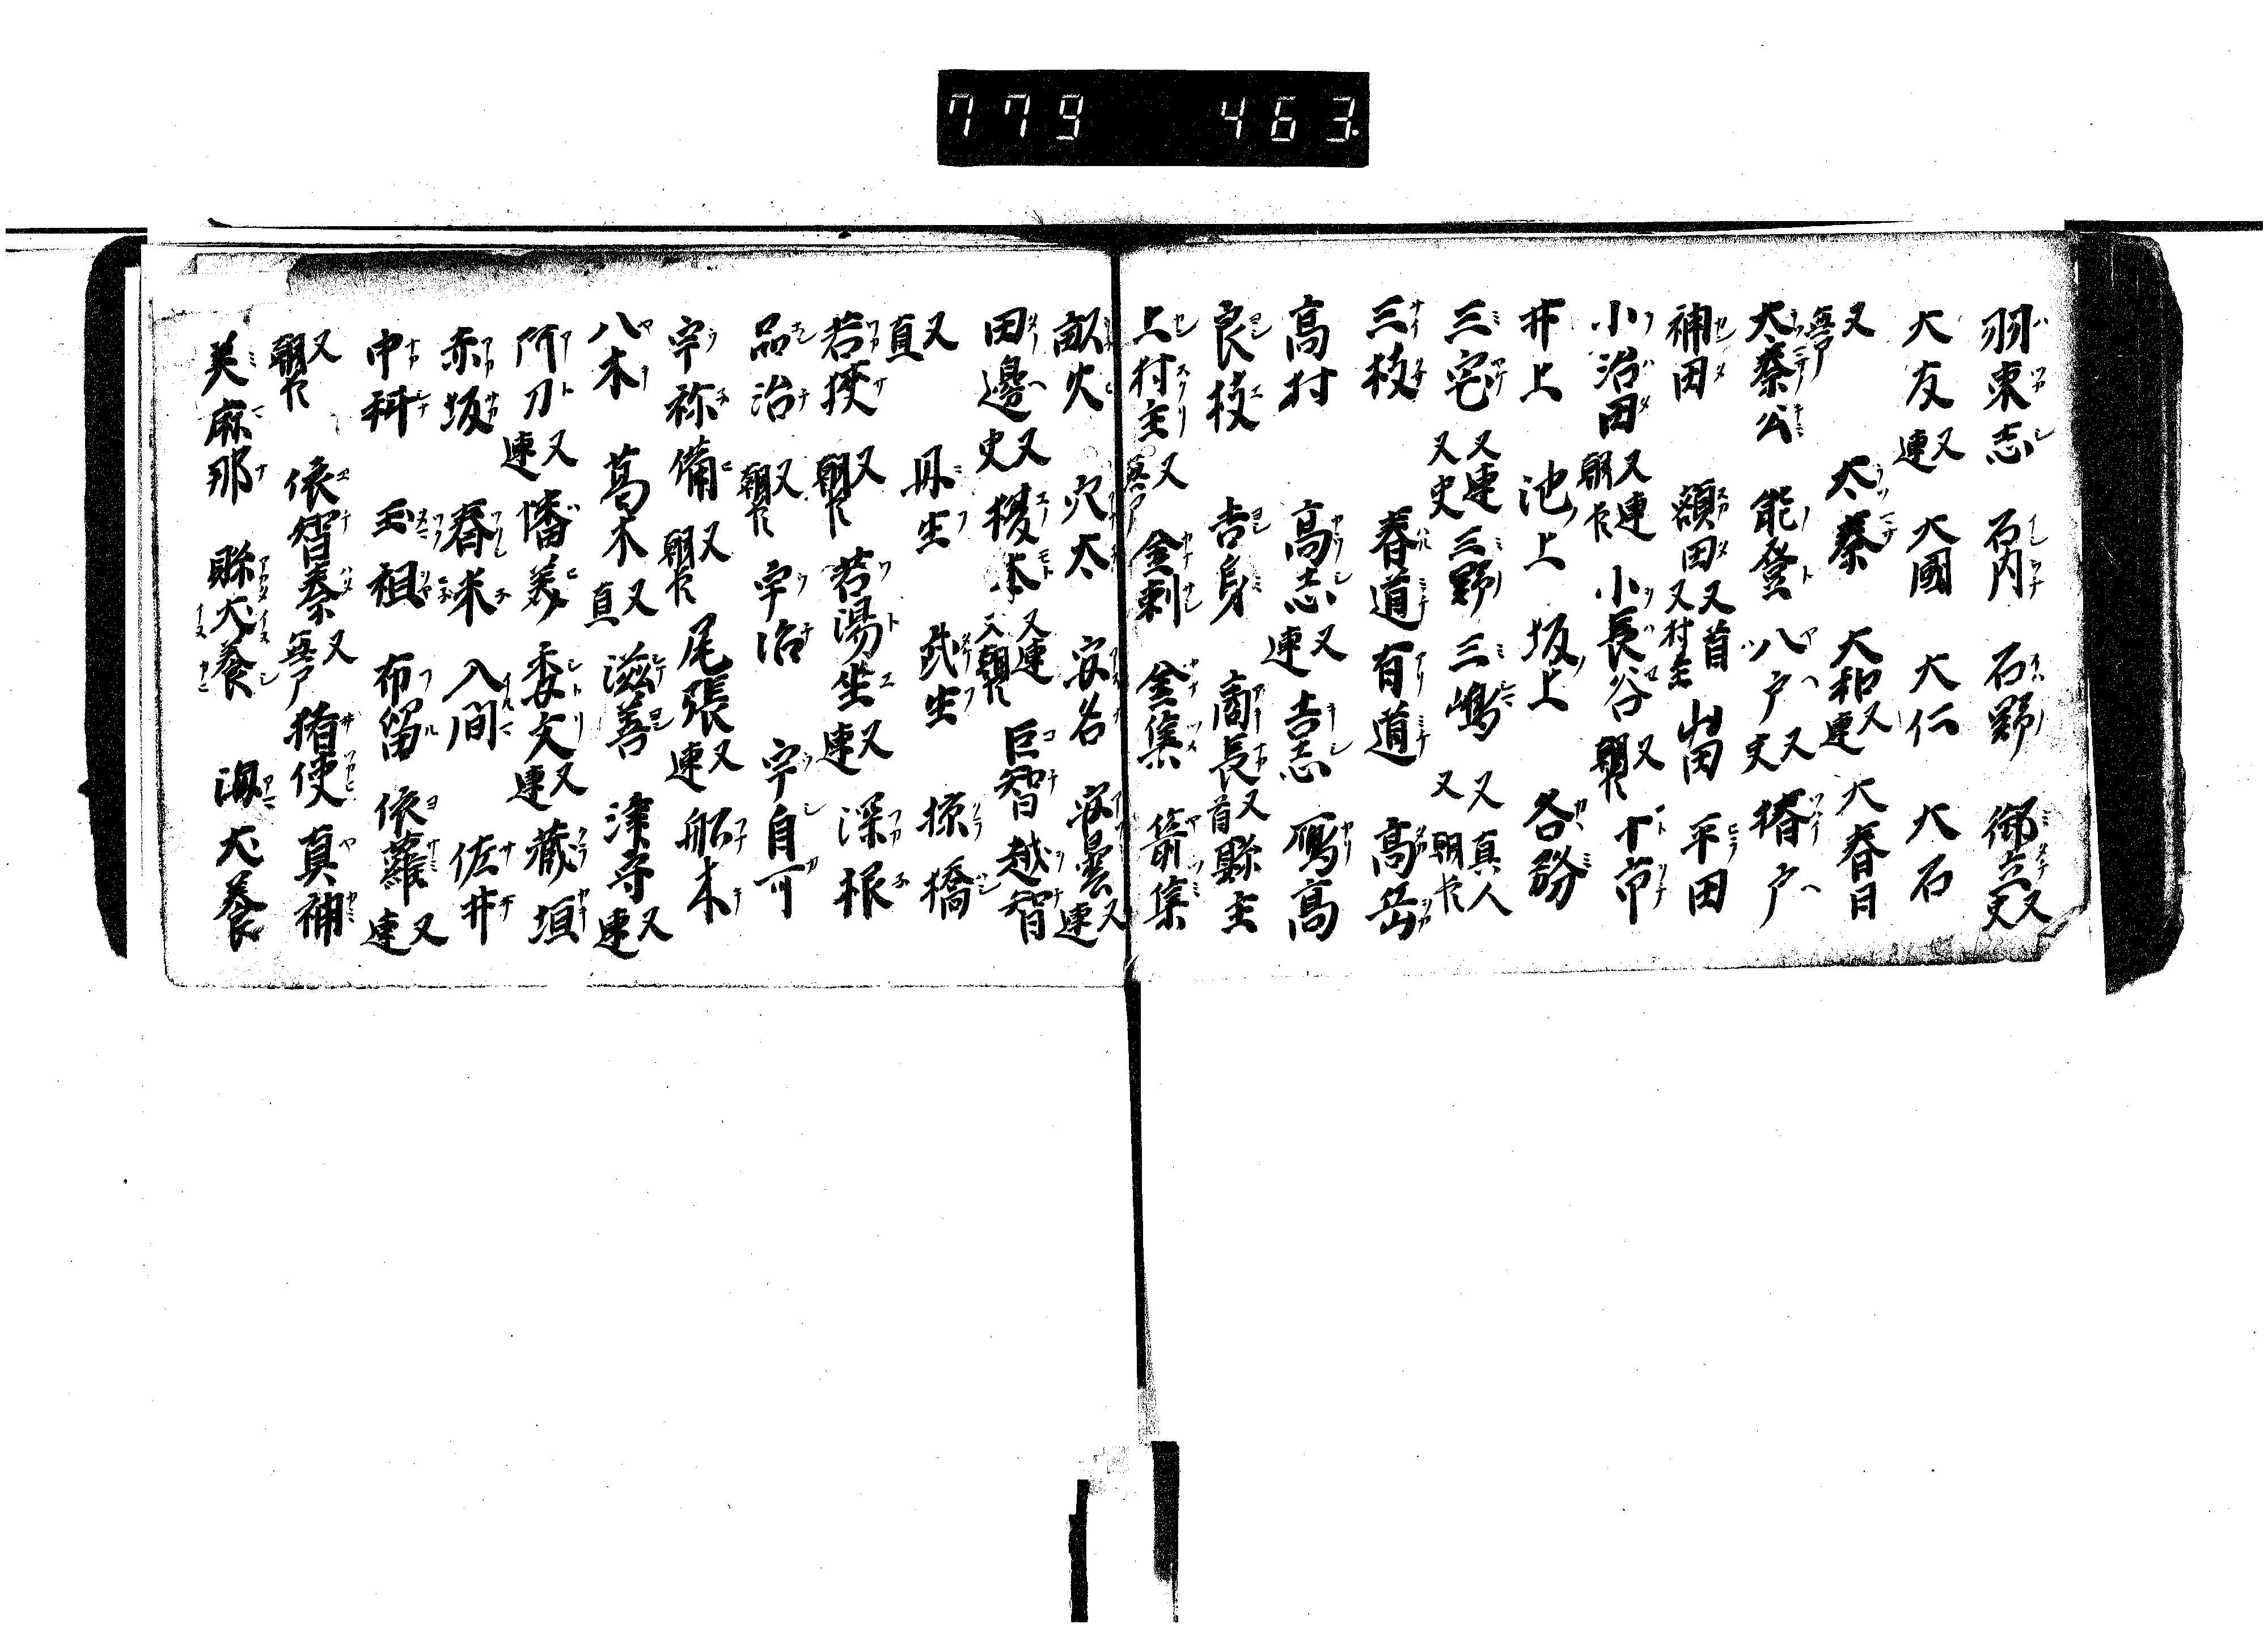 779 463.
羽束志 石内 石野 御立又史
大友又連 大國 大仁 大石
又無戸 太秦 大和又連 大春日
太秦公 能登 八戸又史 椿戸
補田 額田又首又村主 山田 平田
小治田又連又朝臣 小長谷又朝臣 十市
井上 池上 坂上 各務
三宅又連又史 三野 三嶋 又真人又朝臣
三枝 春道 有道 高岳
高村 高志又連 吉志 鴈高
良枝 吉身 商長又首 縣主
上村主又無戸 金刺 金集 箭集
畝火 穴太 安名 安曇又連
田邊又史 榎本又連又朝臣 巨智 越智
又直 丹生 武生 椋橋
若狭又朝臣 若湯坐又連 深根
品治又朝臣 宇治 宇自可
宇祢備又朝臣 尾張又連 船木
八木 葛木又直 滋善 津守又連
阿刀又連 幡美 委文又連 蔵垣
赤坂 舂米 入間 佐井
中科 玉祖 布留 依羅又連
又朝臣 依智秦又無戸 猪使 真神
美麻那 縣犬養 海犬養